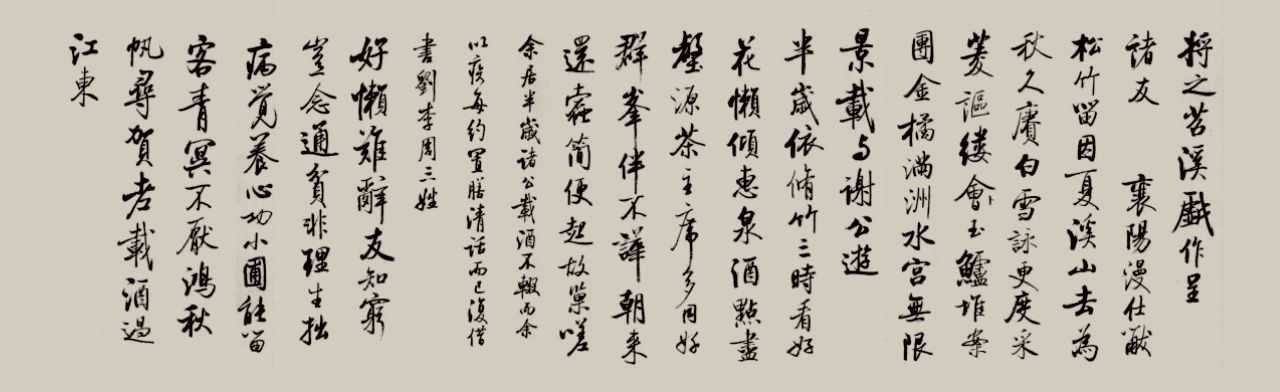 将之苕溪戲作呈
諸友 襄陽漫仕黻
松竹留因夏溪山去為
秋久賡白雪詠更度采
菱謳縷會玉鱸堆案
團金橘滿洲水宮無限
景載与謝公遊
半歲依脩竹三時看好
花懶傾惠泉酒點盡
壑源茶主席多同好
群峯伴不譁朝來
還蠹簡便起故巢嗟
余居半歲諸公載酒不輟而余
以疾每約置膳清話而已復借
書劉李周三姓
好懶難辭友知窮
豈念通貧非理生拙
病覺養心功小圃能留
客青冥不厭鴻秋
帆尋賀老載酒過
江東